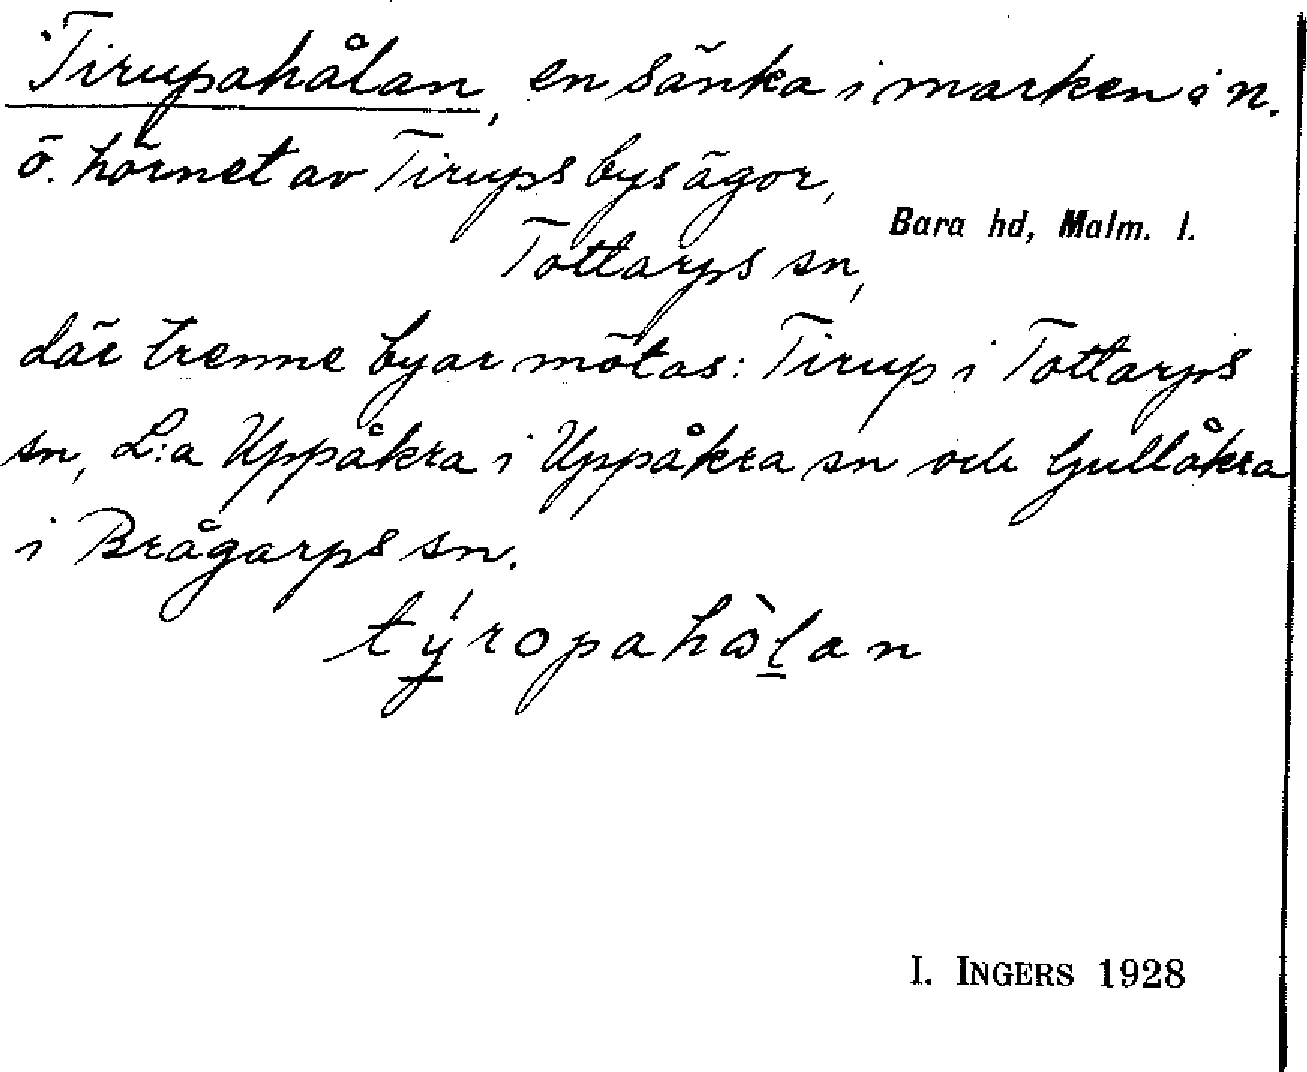 Tirupahålan, en sänka i marken i n.
ö. hörnet av Tirups bys ägor,
Bara hd, Malm. l.
Tottarps sn,
där trenne byar mötas: Tirup i Tottarps
sn, L:a Uppåkra i Uppåkra sn och Gullåkra
i Brågarps sn.
týropahòlan
I. INGERS 1928